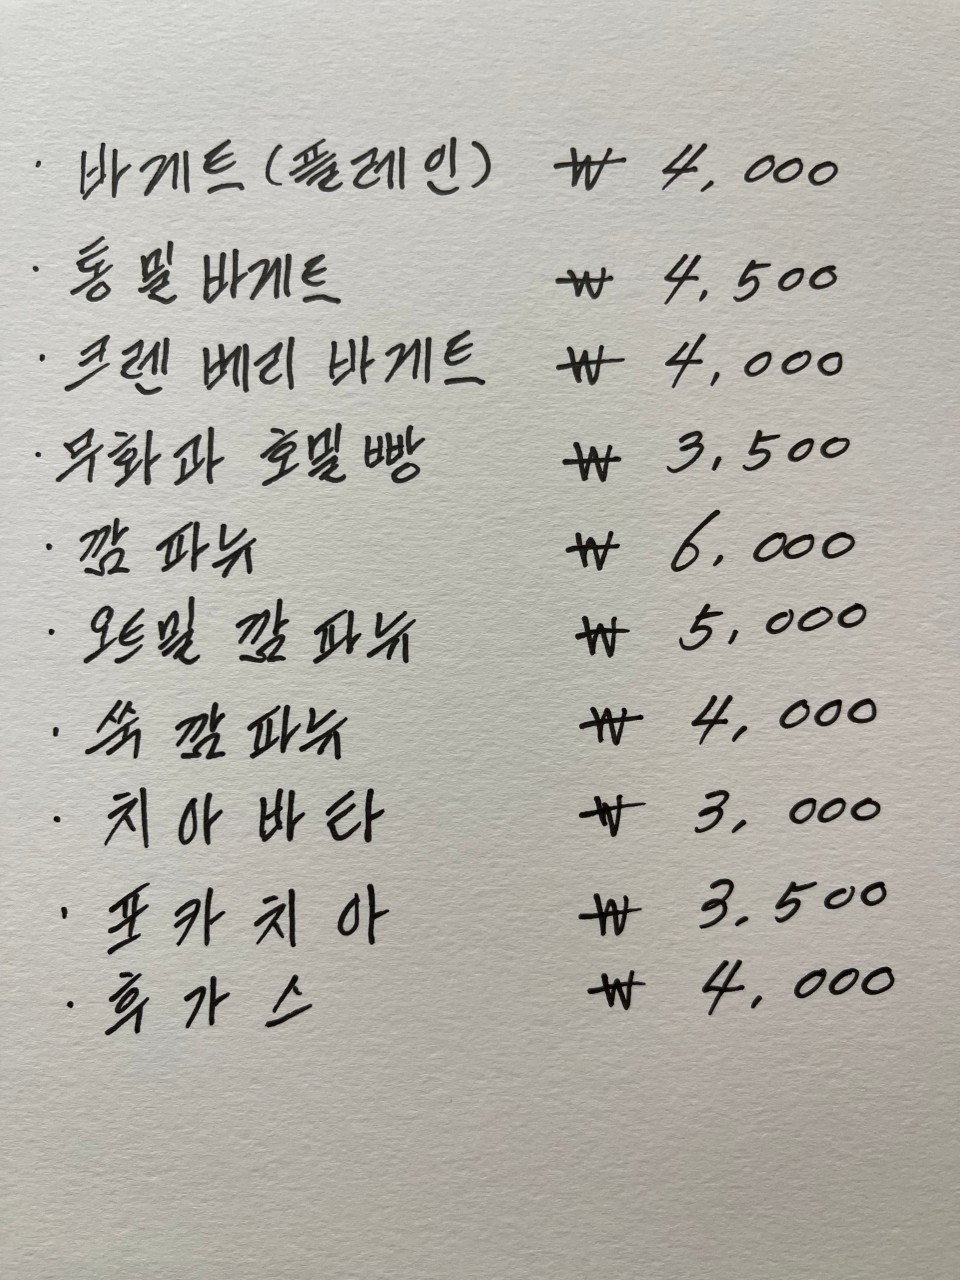 · 바게트(플레인) ₩ 4,000
· 통밀 바게트 ₩ 4,500
· 크렌베리 바게트 ₩ 4,000
· 무화과 호밀빵 ₩ 3,500
· 깜파뉴 ₩ 6,000
· 오트밀 깜파뉴 ₩ 5,000
· 쑥 깜파뉴 ₩ 4,000
· 치아바타 ₩ 3,000
· 포카치아 ₩ 3,500
· 후가스 ₩ 4,000